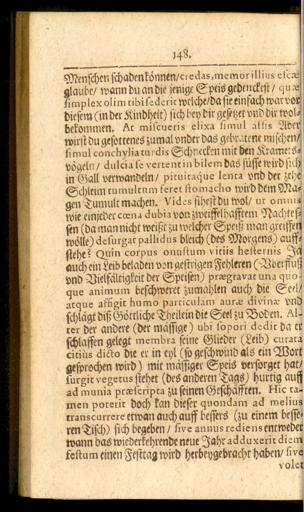 148.
Menschen schaden können/credas, memor illius escæ
glaube/ wann du an die jenige Speis gedenckest/ quæ
simplex olim tibi sederit welche/da sie einfach war vor
diesem (in der Kindheit) sich bey dir gesetzet und dir wol-
bekommen. At miscueris elixa simul assis Aber
wirst du gesottenes zumal under das gebratene mischen/
simul conchylia turdis Schnecken mit den Kramets-
vögeln/ dulcia se vertent in bilem das süsse wird sich
in Gall verwandeln/ pituitaque lenta und der zehe
Schleim tumultum feret stomacho wird dem Ma-
gen Tumult machen. Vides sihest du wol/ ut omnis
wie ein jeder cœna dubia von zweiffelhafftem Nachtes-
sen (da man nicht weißt zu welcher Speiß man greiffen
wölle) desurgat pallidus bleich (des Morgens) auff-
stehe? Quin corpus onustum vitiis hesternis Ja
auch ein Leib beladen von gestrigen Fehleren (Uberfluß
und Vielfältigkeit der Speisen) prægravat una quo-
que animum beschweret zumahlen auch die Seel/
atque affigit humo particulam auræ divinæ und
schlägt diß Göttliche Theil ein die Seel zu Boden. Al-
ter der andere (der mässige) ubi sopori dedit da er
schlaffen gelegt membra seine Glieder (Leib) curata
citiùs dicto die er in eyl (so geschwind als ein Wort
gesprochen wird) mit mässiger Speis versorget hat/
surgit vegetus stehet (des anderen Tags) hurtig auff
ad munia præscripta zu seinen Geschäfften. Hic ta-
men poterit doch kan dieser quondam ad melius
transcurrere etwan auch auff bessers (zu einem besse-
ren Tisch) sich begeben/ sive annus rediens entweder
wann das wiederkehrende neue Jahr adduxerit diem
festum einen Festtag wird herbeygebracht haben/ sive
volet